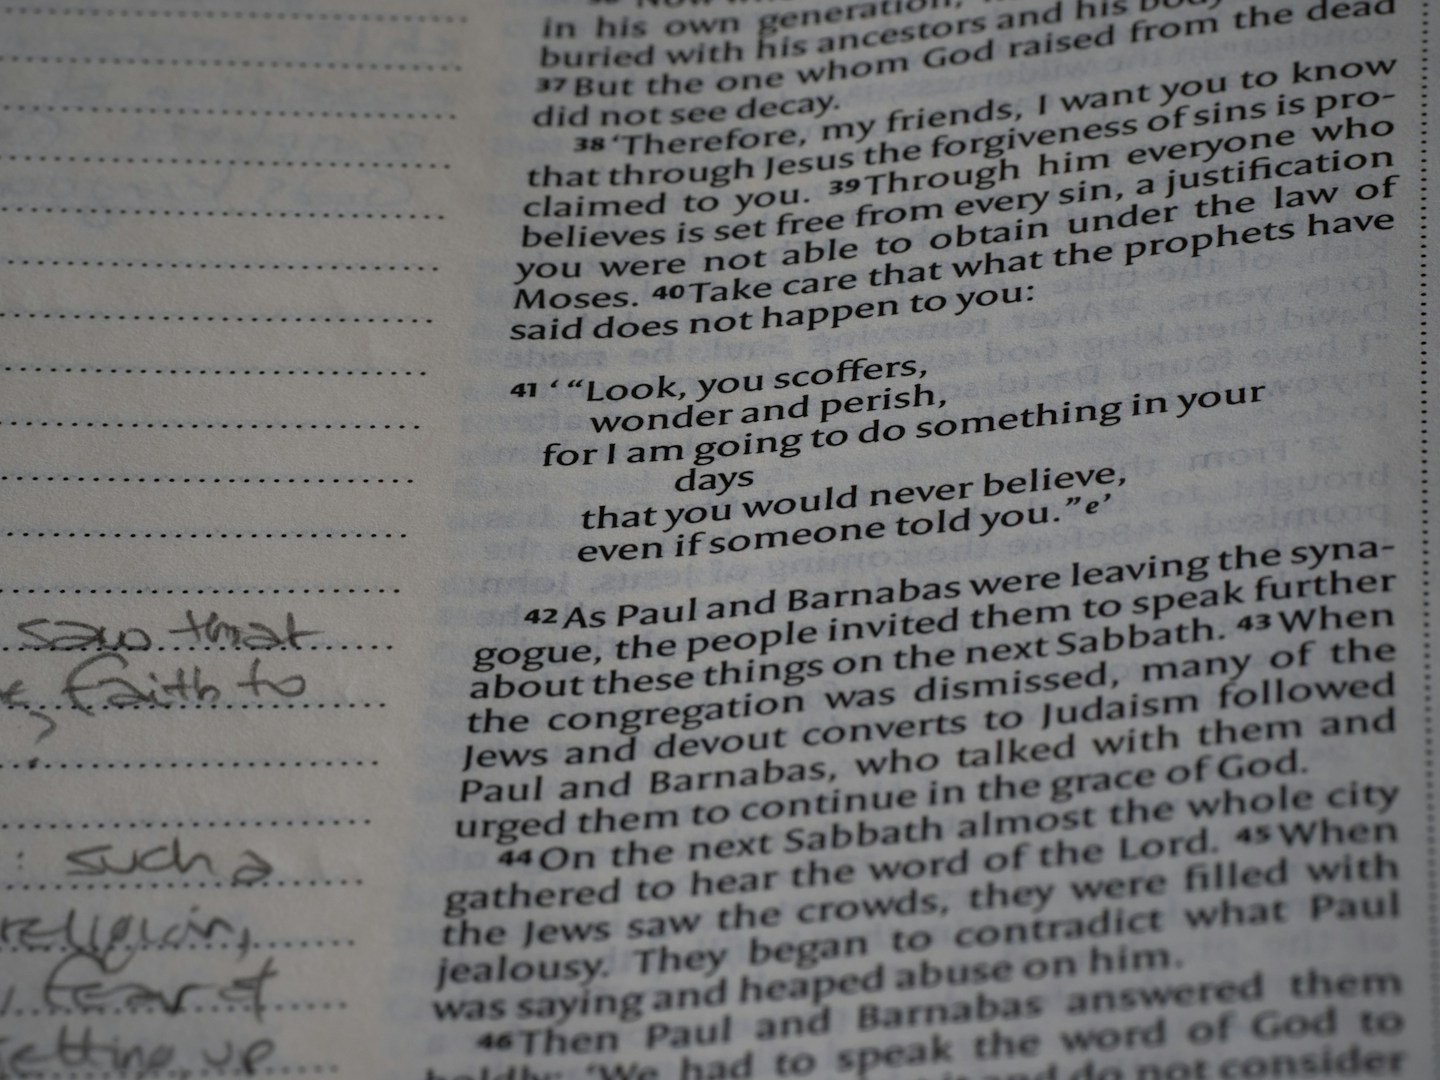 saw that
faith to
such a
religion,
fear of
setting up
in his own generation,
buried with his ancestors and his body
37 But the one whom God raised from the dead
did not see decay.
38 ‘Therefore, my friends, I want you to know
that through Jesus the forgiveness of sins is pro-
claimed to you. 39 Through him everyone who
believes is set free from every sin, a justification
you were not able to obtain under the law of
Moses. 40 Take care that what the prophets have
said does not happen to you:
41 ‘ “Look, you scoffers,
wonder and perish,
for I am going to do something in your
days
that you would never believe,
even if someone told you.” e’
42 As Paul and Barnabas were leaving the syna-
gogue, the people invited them to speak further
about these things on the next Sabbath. 43 When
the congregation was dismissed, many of the
Jews and devout converts to Judaism followed
Paul and Barnabas, who talked with them and
urged them to continue in the grace of God.
44 On the next Sabbath almost the whole city
gathered to hear the word of the Lord. 45 When
the Jews saw the crowds, they were filled with
jealousy. They began to contradict what Paul
was saying and heaped abuse on him.
46 Then Paul and Barnabas answered them
boldly: ‘We had to speak the word of God to
and do not consider